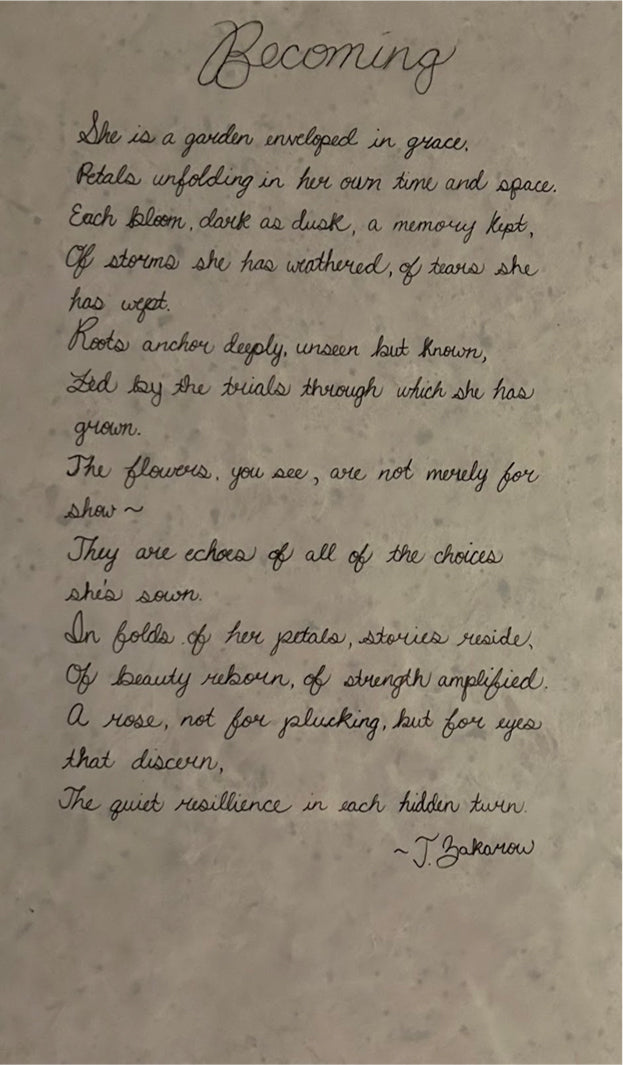 Becoming
She is a garden enveloped in grace,
Petals unfolding in her own time and space.
Each bloom, dark as dusk, a memory kept,
Of storms she has weathered, of tears she
has wept.
Roots anchor deeply, unseen but known,
Led by the trials through which she has
grown.
The flowers, you see, are not merely for
show ~
They are echoes of all of the choices
she's sown.
In folds of her petals, stories reside,
Of beauty reborn, of strength amplified.
A rose, not for plucking, but for eyes
that discern,
The quiet resillience in each hidden turn.
~J. Zakarow